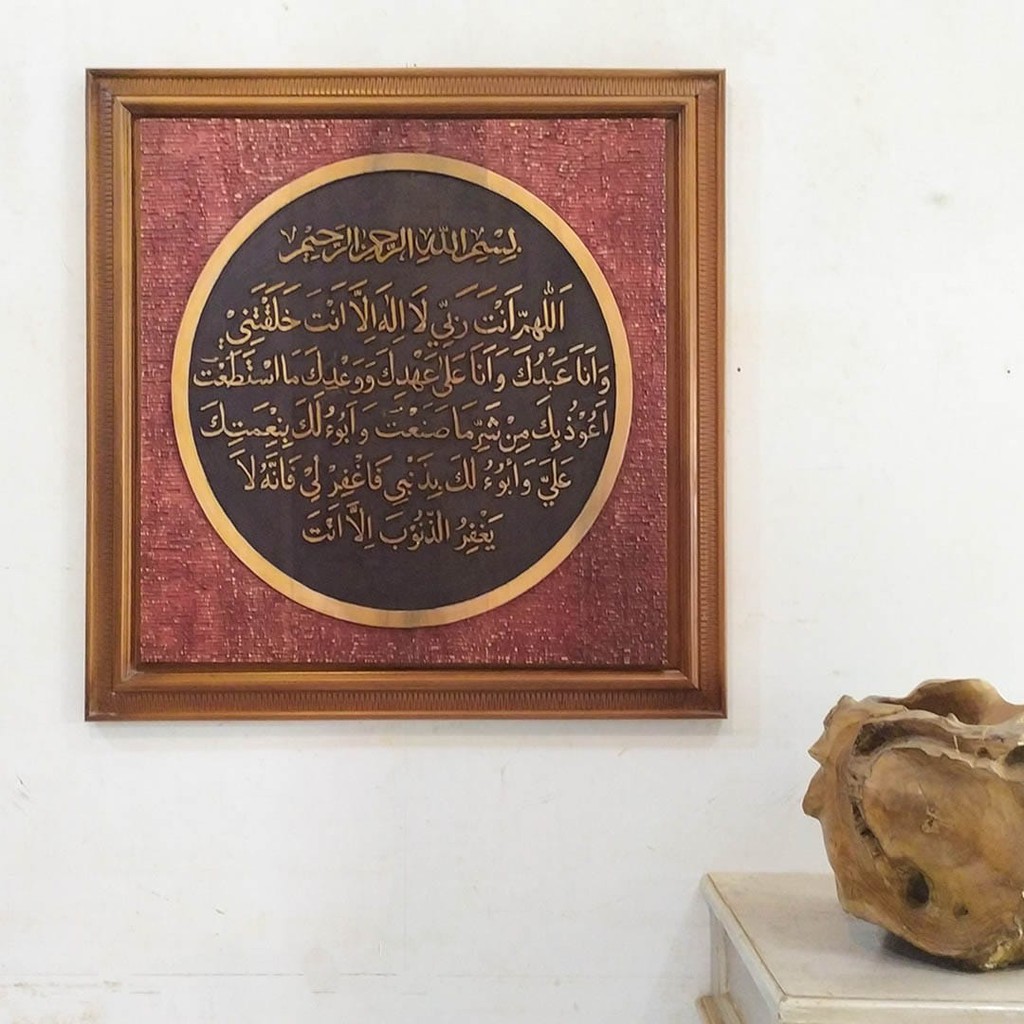 بِسْمِ اللهِ الرَّحْمٰنِ الرَّحِيْمِ
اَللّٰهُمَّ اَنْتَ رَبِّيْ لَا اِلٰهَ اِلَّا اَنْتَ خَلَقْتَنِيْ
وَاَنَا عَبْدُكَ وَاَنَا عَلٰى عَهْدِكَ وَوَعْدِكَ مَا اسْتَطَعْتُ
اَعُوْذُ بِكَ مِنْ شَرِّ مَا صَنَعْتُ وَاَبُوْءُ لَكَ بِنِعْمَتِكَ
عَلَيَّ وَأَبُوْءُ لَكَ بِذَنْبِيْ فَاغْفِرْ لِيْ فَاِنَّهُ لَا
يَغْفِرُ الذُّنُوْبَ اِلَّا اَنْتَ